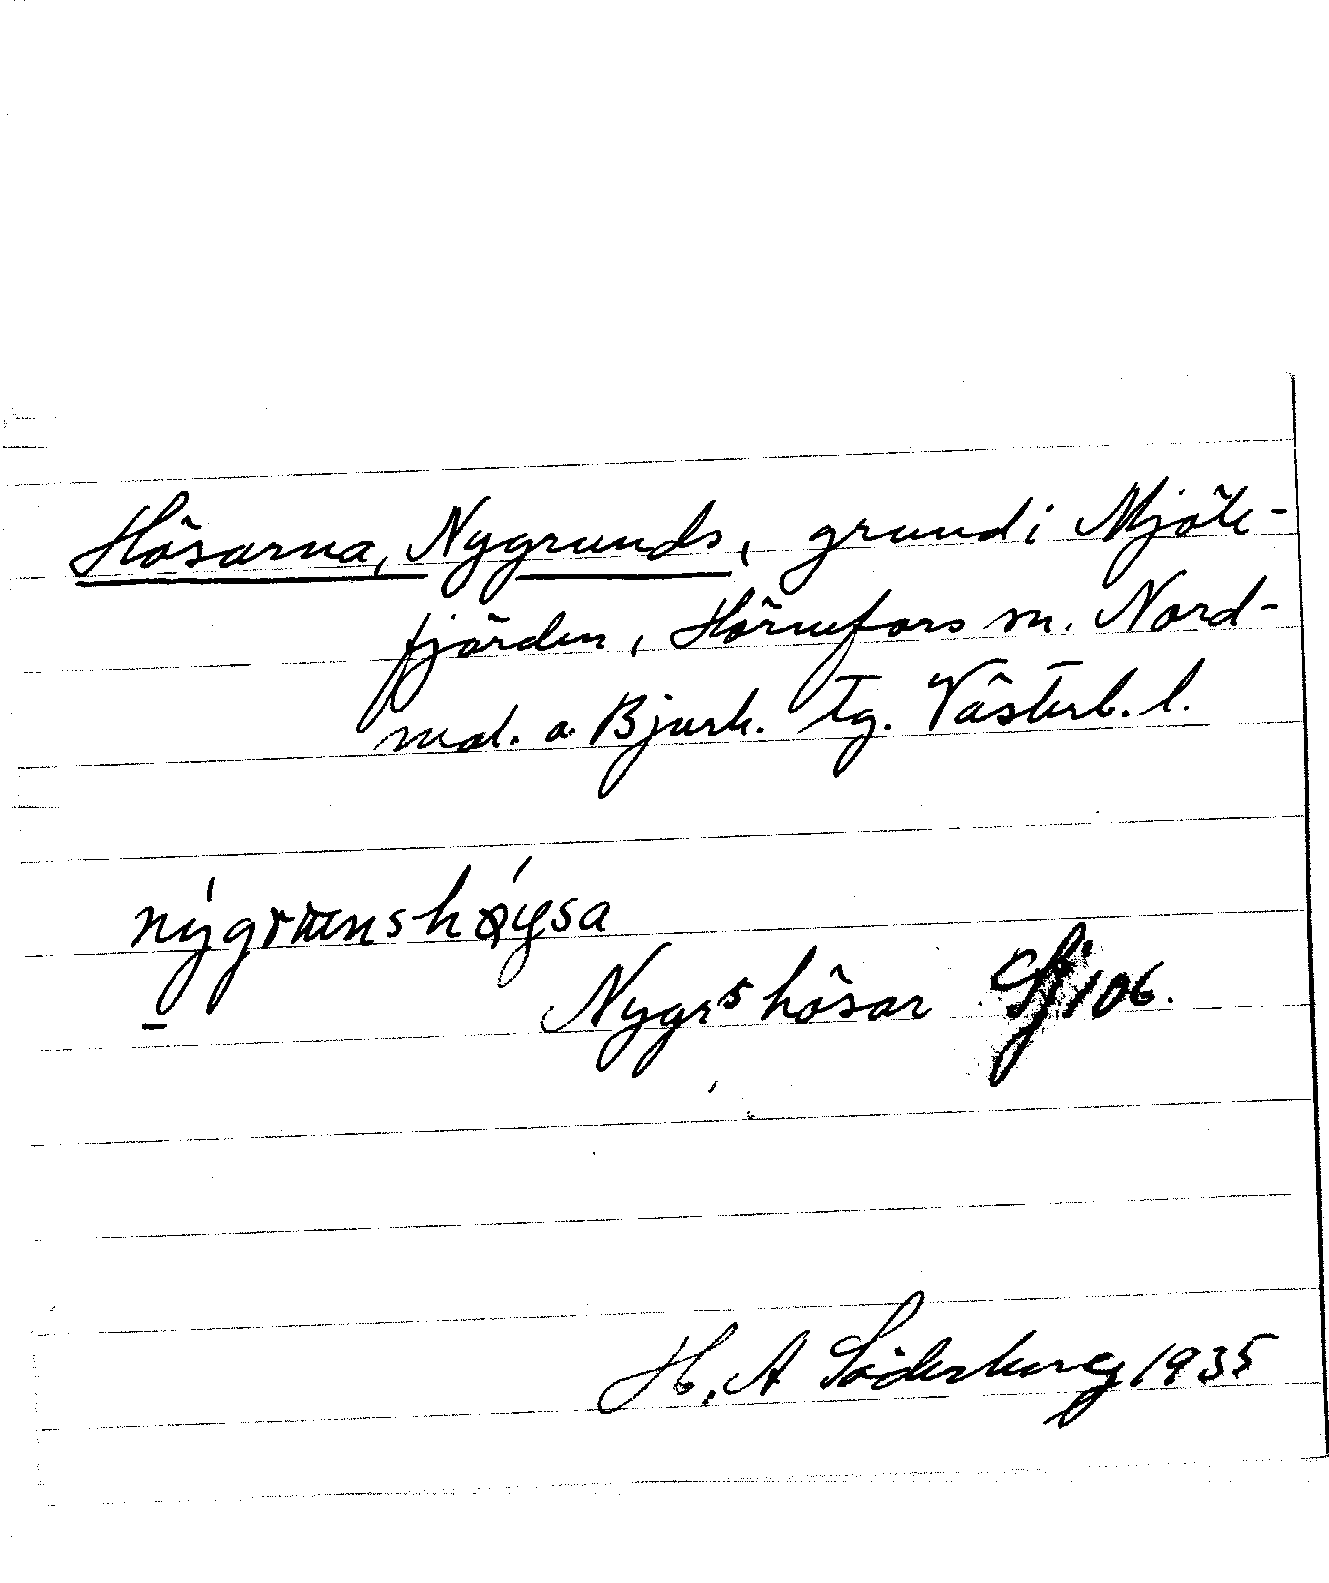 Hösarna, Nygrunds, grund i Mjöle-
fjärden, Hörnefors sn. Nord-
mal. o. Bjurh. tg. Västerb. l.
nýgrunshǿysa
Nygrs hösar Sj 106.
H. A Söderberg 1935